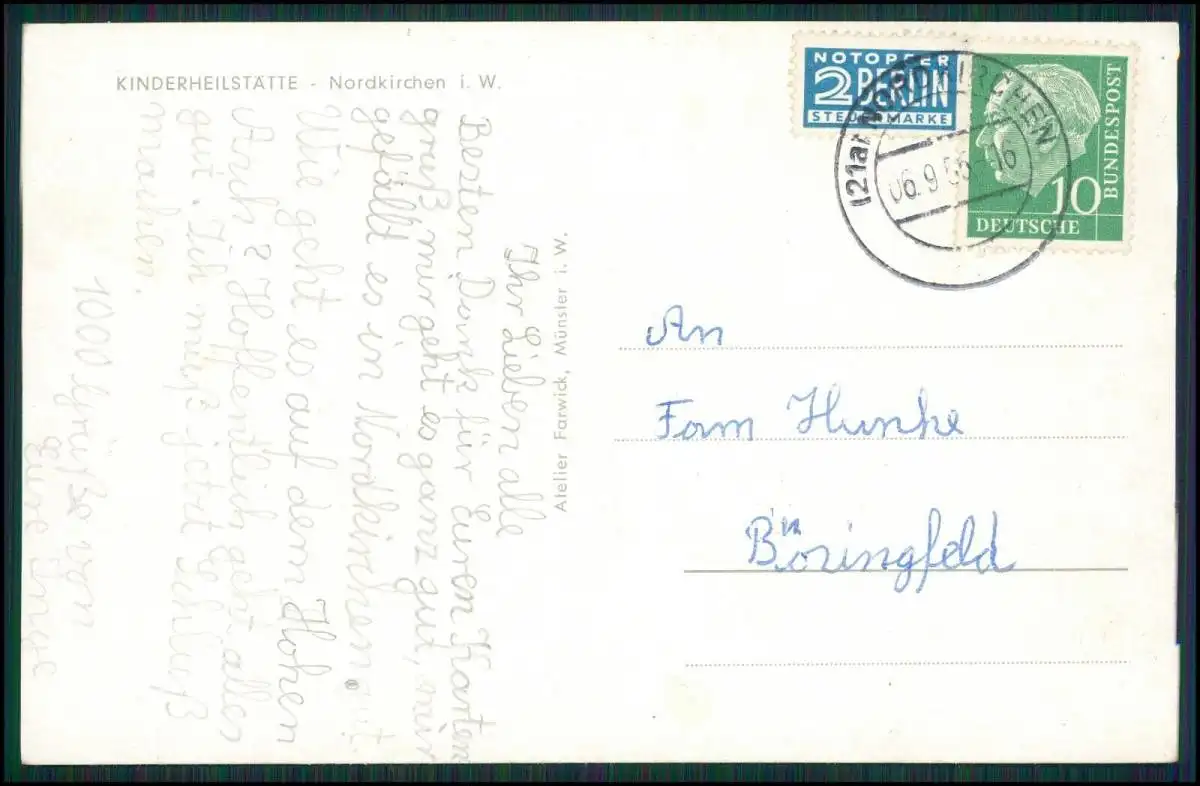 KINDERHEILSTÄTTE - Nordkirchen i. W.
NOTOPFER
2 BERLIN
STEUERMARKE
DEUTSCHE
BUNDESPOST
10
(21a) NORDKIRCHEN
06.9.56-16
Ihr Lieben alle
Besten Dank für Euren Karten
gruß, mir geht es ganz gut, mir
gefällt es in Nordkirchen gut.
Wie geht es auf dem Hohen
Asch? Hoffentlich geht alles
gut. Ich muß jetzt Schluß
machen.
1000 Grüße von
Eure Inge
Atelier Farwick, Münster i. W.
An
Fam Hunke
Bösingfeld